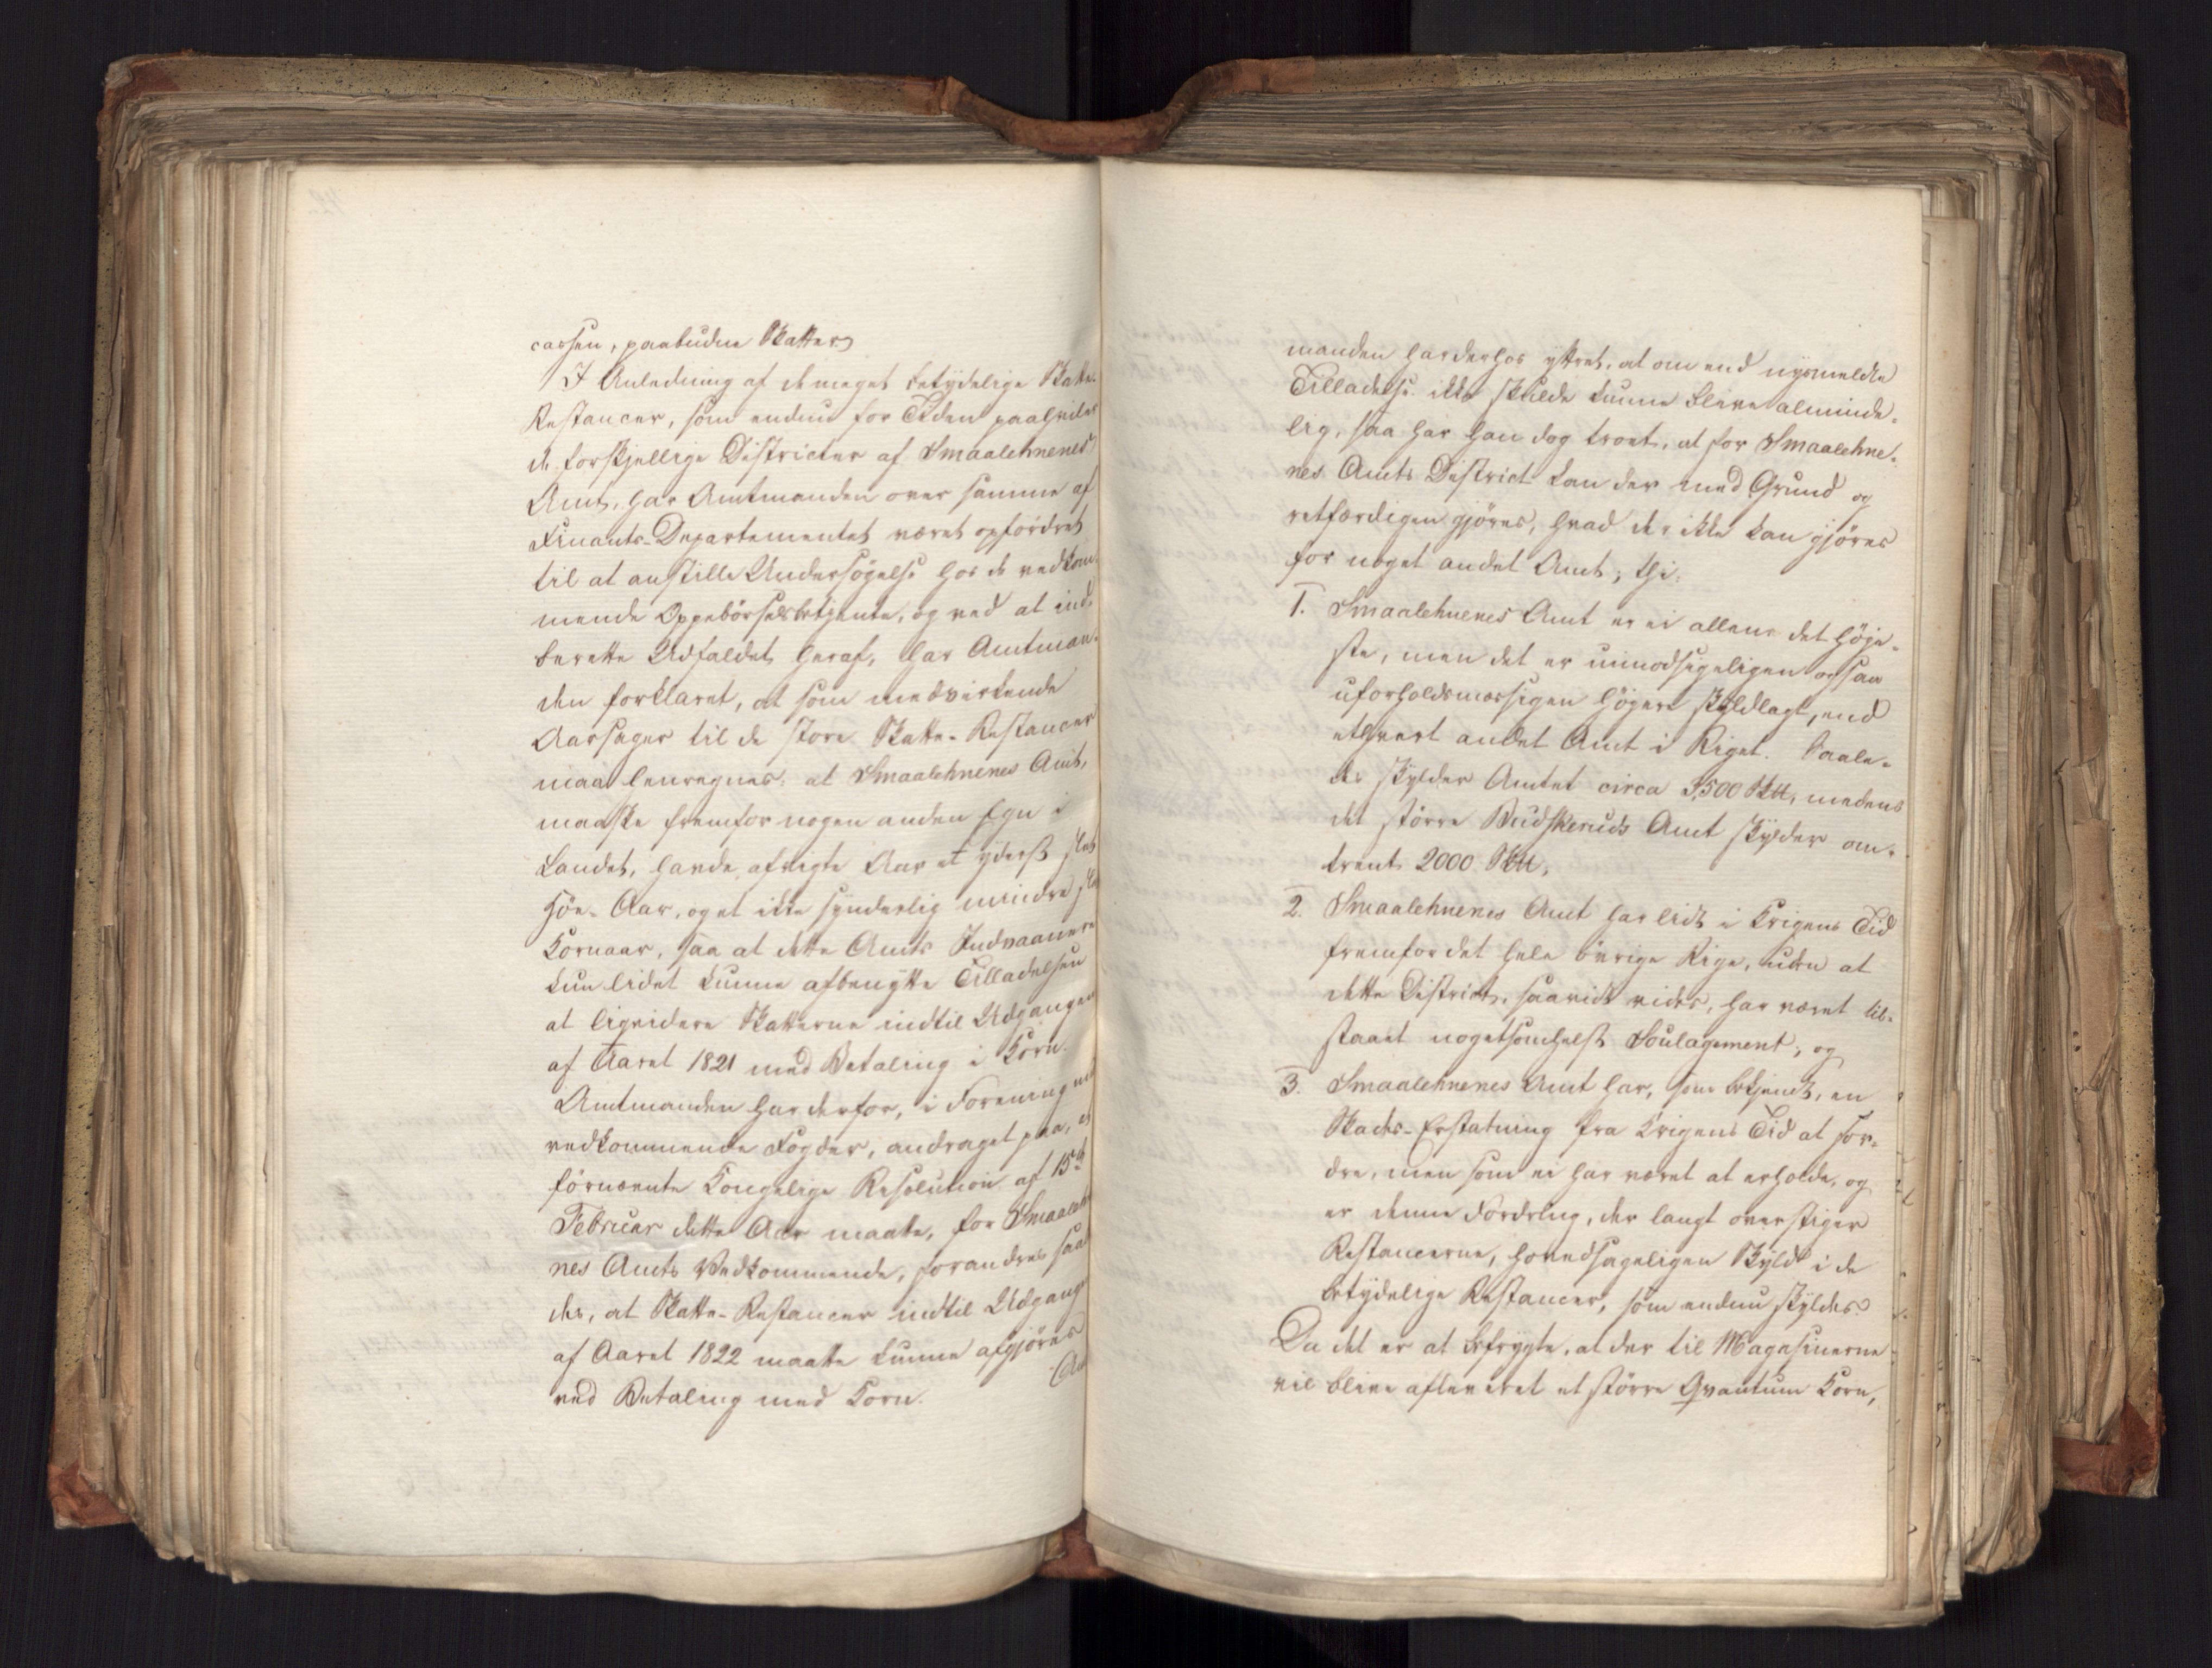 cassen, paabudne Skatter
I Anledning af de meget betydelige Skatte-
Restancer, som endnu for Tiden paahviler
de forskjellige Districter af Smaalehnenes
Amt, har Amtmanden over samme af
Finants-Departementet været opfordret
til at anstille Undersøgelse hos de vedkom-
mende Oppebørselsbetjente, og ved at ind-
berette Udfaldet heraf, har Amtman-
den forklaret, at som medvirkende
Aarsager til de store Skatte-Restancer
maa henregnes: at Smaalehnenes Amt,
maaske fremfor nogen anden Egn i
Landet, havde afvigte Aar et yderst slet
Höe-Aar, og et ikke synderlig mindre slet
Kornaar, saa at dette Amts Indvaanere
kun lidet kunne afbenytte Tilladelsen
at liqvidere Skatterne indtil Udgangen
af Aaret 1821 med Betaling i Korn.
Amtmanden har derfor, i Forening med
vedkommende Fogder, andraget paa, at
förnævnte Kongelige Resolution af 15de
Februar dette Aar maatte, for Smaaleh
nes Amts Vedkommende, forandres saale
des, at Skatte-Restancer indtil Udgangen
af Aaret 1822 maatte kunne afgjöres
ved Betaling med Korn.
Amt
manden har derhos yttret, at om end nysmeldte
Tilladelse ikke skulde kunne blive alminde-
lig, saa har han dog troet, at for Smaalehne-
nes Amts District kan der med Grund og
retfærdigen gjöres, hvad der ikke kan gjöres
for noget andet Amt; thi:
1. Smaalehnenes Amt er ei allene det höje-
ste, men det er uimodsigeligen ogsaa
uforholdsmæssigen höjere skyldlagt, end
ethvert andet Amt i Riget. Saale-
des skylder Amtet circa 3,500 Sktt, medens
det större Budskeruds Amt skylder om-
trent 2000 Sktt,
2. Smaalehnenes Amt har lidt i Krigens Tid
fremfor det hele övrige Rige, uden at
dette District, saavidt vides, har været til-
staaet nogetsomhelst Soulagement; og
3. Smaalehnenes Amt har, som bekjendt, en
Skades-Erstatning fra Krigens Tid at for-
dre, men som ei har været at erholde, og
er denne Fordring, der langt overstiger
Restancerne, hovedsageligen Skyld i de
betydelige Restancer, som endnu skyldes.
Da det er at befrygte, at der til Magasinerne
vil blive afleveret et större Qvantum Korn,